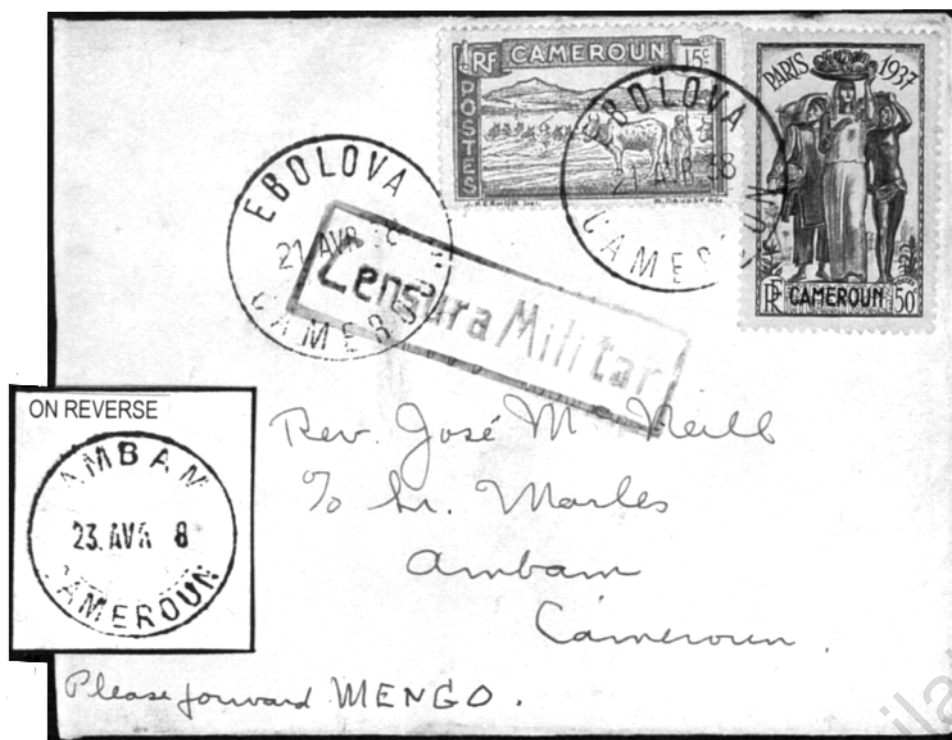 RF CAMEROUN 15c
POSTES
PARIS 1937
RF CAMEROUN 50c
EBOLOVA
21 AVR
CAMEROUN
BOLOVA
21 AVR 38
CAMEROUN
Censura Militar
ON REVERSE
AMBAM
23. AVR 8
CAMEROUN
Rev. José Mc Neill
c/o Sr. Marles
Ambam
Cameroun.
Please forward MENGO.